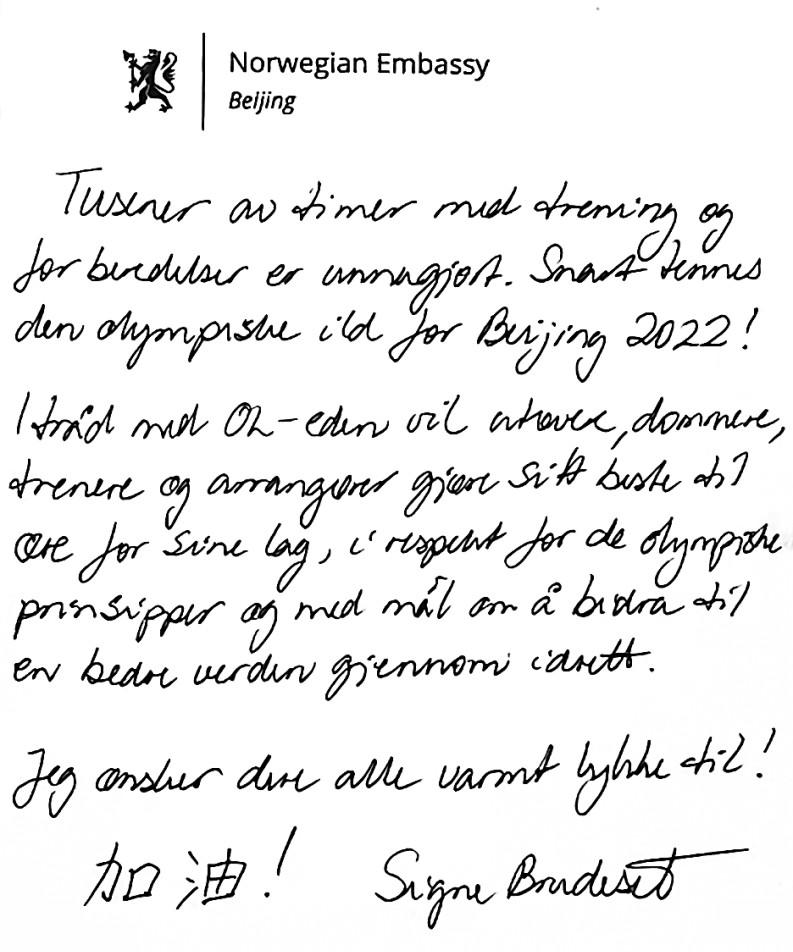 Norwegian Embassy
Beijing
Tusener av timer med trening og
forberedelser er unnagjort. Snart tennes
den olympiske ild for Beijing 2022!
I tråd med OL-eden vil utøvere, dommere,
trenere og arrangører gjøre sitt beste til
ære for sine lag, i respekt for de olympiske
prinsipper og med mål om å bidra til
en bedre verden gjennom idrett.
Jeg ønsker dere alle varmt lykke til!
加油! Signe Brudeset